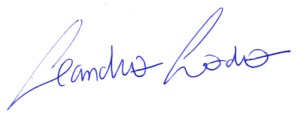 Leandro Lodo